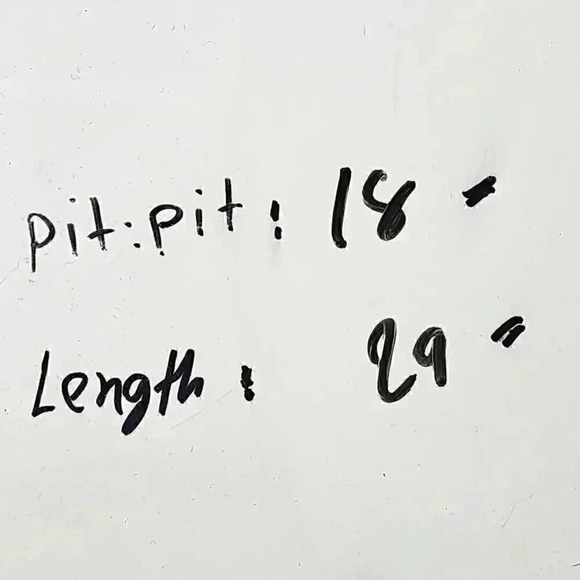 pit:pit: 18"
Length: 29"